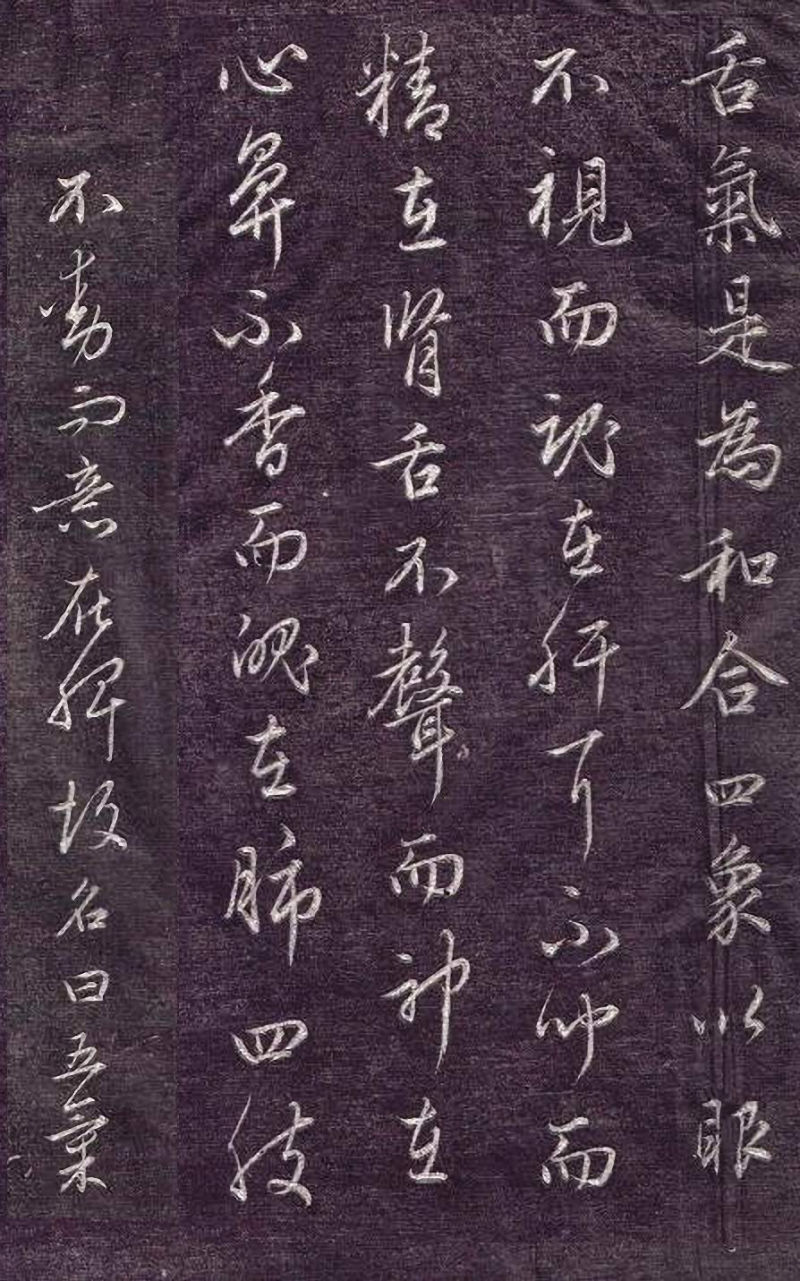 舌氣是為和合四象以眼
不視而魂在肝耳不而
精在腎舌不聲而神在
心鼻不香而魄在肺四肢
不動而意在脾故名曰五氣